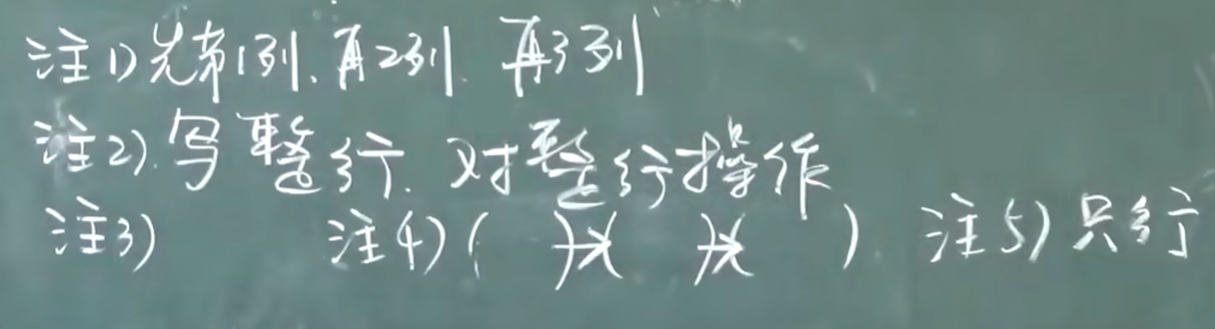 注1)先第1列.再2列.再3列
注2).写整行.对整行操作
注3) 注4)( )→( )→( ). 注5)只行